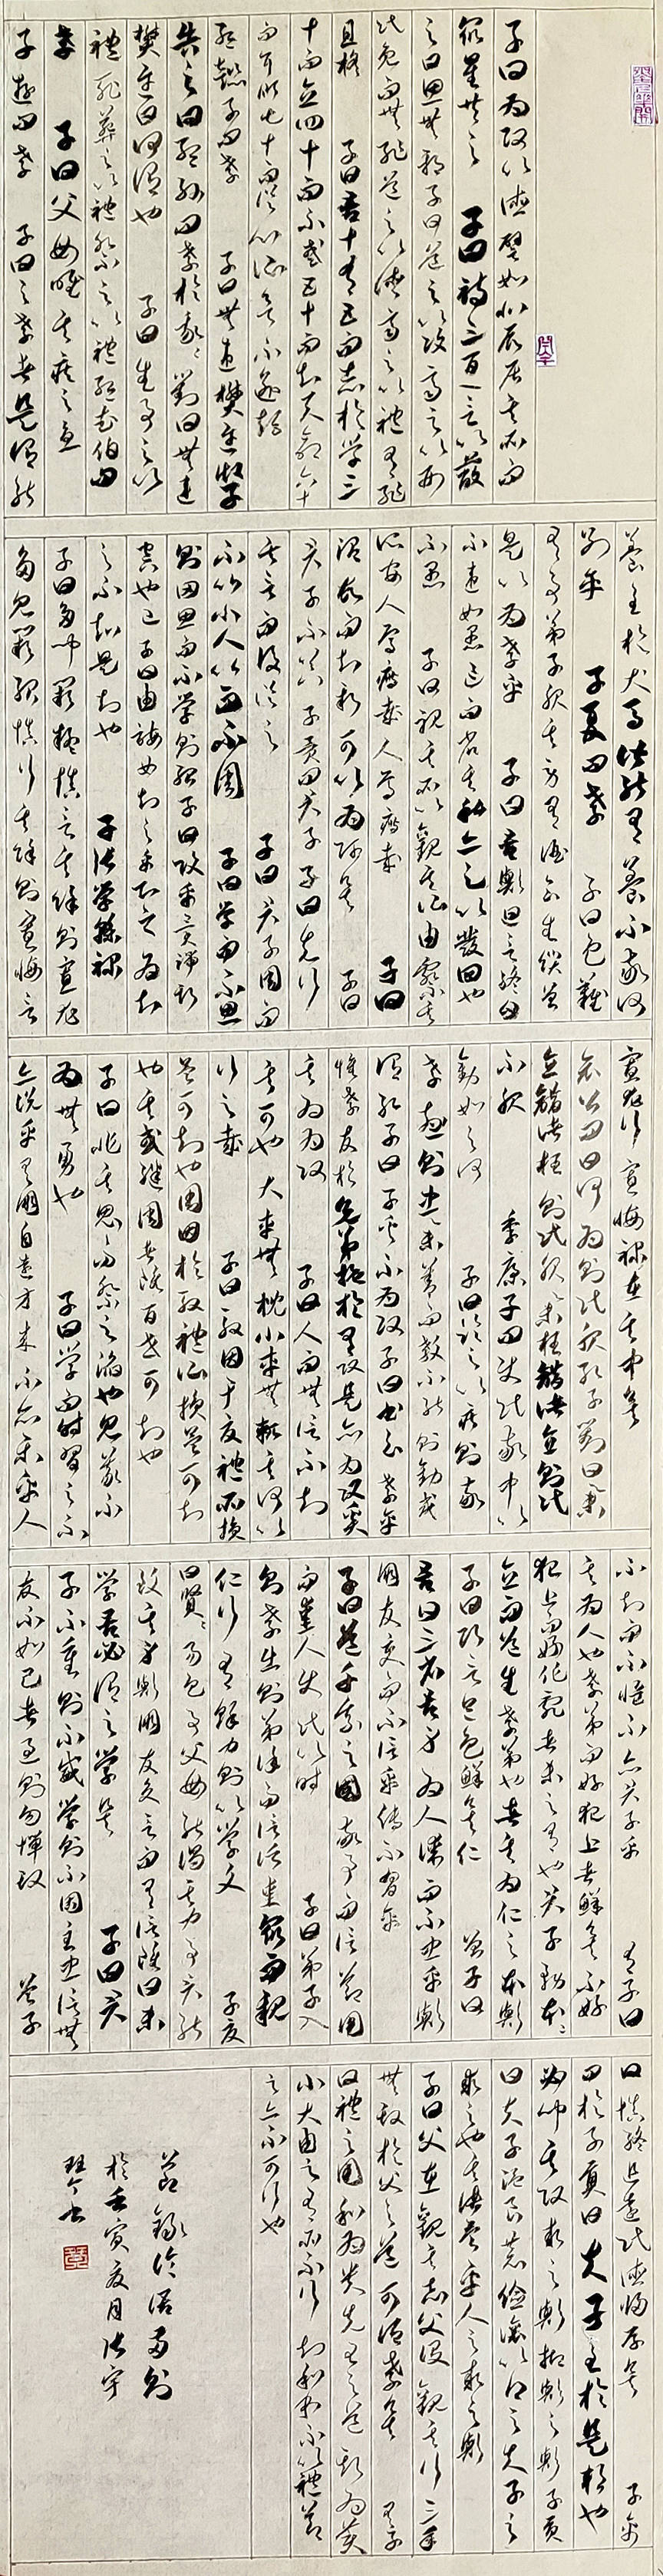 子曰為政以德譬如北辰居其所而
眾星共之 子曰詩三百一言以蔽
之曰思無邪子曰道之以政齊之以刑
民免而無恥道之以德齊之以禮有恥
且格 子曰吾十有五而志於學三
十而立四十而不惑五十而知天命六十
而耳順七十而從心所欲不逾矩
孟懿子問孝 子曰無違樊遲御子
告之曰孟孫問孝於我我對曰無違
樊遲曰何謂也 子曰生事之以
禮死葬之以禮祭之以禮孟武伯問
孝 子曰父母唯其疾之憂
子游問孝 子曰今之孝者是謂能
養至於犬馬皆能有養不敬何
別乎 子夏問孝 子曰色難
有事弟子服其勞有酒食先生饌曾
是以為孝乎 子曰吾與回言終日
不違如愚退而省其私亦足以發回也
不愚 子曰視其所以觀其所由察其
所安人焉廋哉人焉廋哉 子曰
溫故而知新可以為師矣 子曰
君子不器 子貢問君子 子曰先行
其言而後從之 子曰君子周而
不比小人比而不周 子曰學而不思
則罔思而不學則殆子曰攻乎異端斯
害也已子曰由誨女知之乎知之為知
之不知是知也 子張學干祿
子曰多聞闕疑慎言其餘則寡尤
多見闕殆慎行其餘則寡悔言
寡尤行寡悔祿在其中矣
哀公問曰何為則民服孔子對曰舉
直錯諸枉則民服舉枉錯諸直則民
不服 季康子問使民敬忠以
勸如之何 子曰臨之以莊則敬
孝慈則忠舉善而教不能則勸或
謂孔子曰子奚不為政子曰書云孝乎
惟孝友於兄弟施於有政是亦為政奚
其為為政 子曰人而無信不知
其可也大車無輗小車無軏其何以
行之哉 子曰殷因于夏禮所損
益可知也周因於殷禮所損益可知
也其或繼周者雖百世可知也
子曰非其鬼而祭之諂也見義不
為無勇也 子曰學而時習之不
亦說乎有朋自遠方來不亦樂乎人
不知而不慍不亦君子乎 有子曰
其為人也孝弟而好犯上者鮮矣不好
犯上而好作亂者未之有也君子務本本
立而道生孝弟也者其為仁之本與
子曰巧言令色鮮矣仁 曾子曰
吾日三省吾身為人謀而不忠乎與
朋友交而不信乎傳不習乎
子曰道千乘之國敬事而信節用
而愛人使民以時 子曰弟子入
則孝出則弟謹而信汎愛眾而親
仁行有餘力則以學文 子夏
曰賢賢易色事父母能竭其力事君能
致其身與朋友交言而有信雖曰未
學吾必謂之學矣 子曰君
子不重則不威學則不固主忠信無
友不如己者過則勿憚改 曾子
曰慎終追遠民德歸厚矣 子禽
問於子貢曰夫子至於是邦也
必聞其政求之與抑與之與子貢
曰夫子溫良恭儉讓以得之夫子之
求之也其諸異乎人之求之與
子曰父在觀其志父沒觀其行三年
無改於父之道可謂孝矣 有子
曰禮之用和為貴先王之道斯為美
小大由之有所不行知和而和不以禮節
之亦不可行也
節錄論語兩則
於壬寅夏月張宇